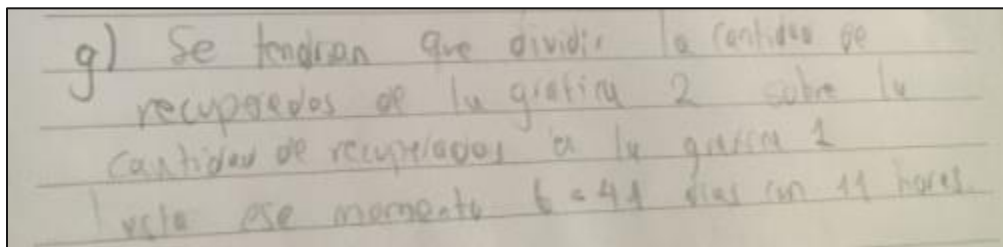 g) Se tendran que dividir la cantidad de
recuperados de la grafica 2 sobre la
cantidad de recuperados a la grafica 1
hasta ese momento t = 41 dias con 11 horas.